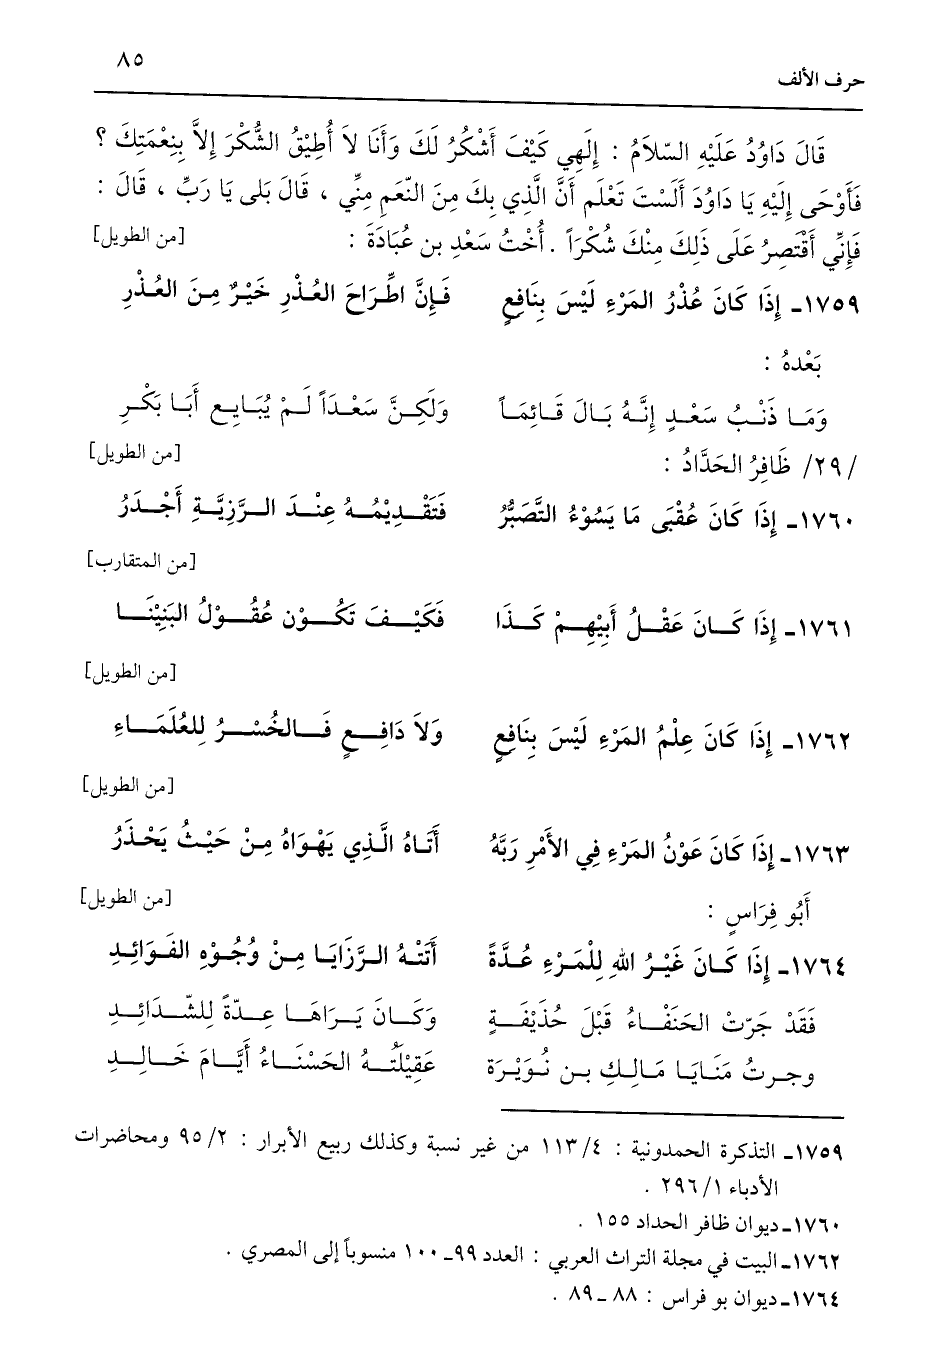 ٨٥
حرف الألف
قَالَ دَاوُدُ عَلَيْهِ السّلاَمُ : إِلَهِي كَيْفَ أَشْكُرُ لَكَ وَأَنَا لاَ أُطِيْقُ الشُّكْرَ إِلاَّ بِنِعْمَتِكَ ؟
فَأَوْحَى إِلَيْهِ يَا دَاوُدَ أَلَسْتَ تَعْلَم أَنَّ الَّذِي بِكَ مِنَ النّعَمِ مِنِّي ، قَالَ بَلى يَا رَبِّ ، قَالَ :
فَإِنِّي أَقْتَصِرُ عَلَى ذَلِكَ مِنْكَ شُكْرَاً . أُخْتُ سَعْدِ بن عُبَادَةَ : [من الطويل]
١٧٥٩ـ إِذَا كَانَ عُذْرُ المَرْءِ لَيْسَ بِنَافِعٍ فَإِنَّ اطِّرَاحَ العُذْرِ خَيْرٌ مِنَ العُذْرِ
بَعْدهُ :
وَمَا ذَنْبُ سَعْدٍ إِنَّهُ بَالَ قَائِمَاً وَلَكِنَّ سَعْدَاً لَمْ يُبَايِع أَبَا بَكْرِ
/٢٩/ ظَافِرُ الحَدَّادُ : [من الطويل]
١٧٦٠ـ إِذَا كَانَ عُقْبَى مَا يَسُوْءُ التَّصَبُّرُ فَتَقْدِيْمُهُ عِنْدَ الرَّزِيَّةِ أَجْدَرُ
[من المتقارب]
١٧٦١ـ إِذَا كَانَ عَقْلُ أَبِيْهِمْ كَذَا فَكَيْفَ تَكُوْن عُقُوْلُ البَنِيْنَا
[من الطويل]
١٧٦٢ـ إِذَا كَانَ عِلْمُ المَرْءِ لَيْسَ بِنَافِعٍ وَلاَ دَافِعٍ فَالخُسْرُ لِلعُلَمَاءِ
[من الطويل]
١٧٦٣ـ إِذَا كَانَ عَوْنُ المَرْءِ فِي الأَمْرِ رَبَّهُ أَتَاهُ الَّذِي يَهْوَاهُ مِنْ حَيْثُ يَحْذَرُ
أَبُو فِرَاسٍ : [من الطويل]
١٧٦٤ـ إِذَا كَانَ غَيْرُ اللهِ لِلْمَرْءِ عُدَّةً أَتَتْهُ الرَّزَايَا مِنْ وُجُوْهِ الفَوَائِدِ
فَقَدْ جَرّتْ الحَنْفَاءُ قَبْلَ حُذَيْفَةٍ وَكَانَ يَرَاهَا عِدّةً لِلشّدَائِدِ
وجرتُ مَنَايَا مَالِكِ بن نُوَيْرَة عَقِيْلَتُهُ الحَسْنَاءُ أَيَّامَ خَالِدِ
١٧٥٩ـ التذكرة الحمدونية : ١١٣/٤ من غير نسبة وكذلك ربيع الأبرار : ٩٥/٢ ومحاضرات
الأدباء ٢٩٦/١ .
١٧٦٠ـ ديوان ظافر الحداد ١٥٥ .
١٧٦٢ـ البيت في مجلة التراث العربي : العدد ٩٩ـ ١٠٠ منسوباً إلى المصري .
١٧٦٤ـ ديوان بو فراس : ٨٨ ـ ٨٩ .